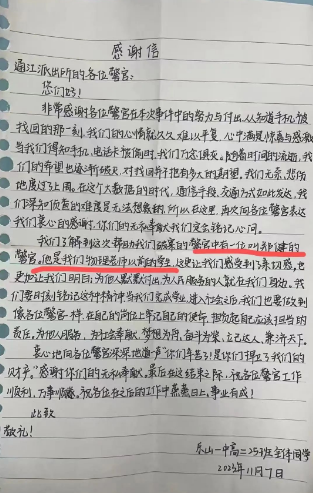 感谢信
通江派出所的各位警官:
您们好!
非常感谢各位警官在本次事件中的努力与付出,从知道手机被
找回的那一刻,我们的心情就久久难以平复,心中满是惊喜与感激
当我们得知手机、电话卡被偷时,我们万念俱灰。随着时间的流逝,我
们的希望也逐渐破灭,对找回并不抱有多大的期望。我们无奈,悲伤
地度过了上周。在这个大数据的时代,通信手段,交通方式如此发达,我
们深知侦查的难度是无法想象的,所以在这里,再次向各位警官表达
我们衷心的感谢,你们的无私奉献我们定会铭记心间。
我们了解到这次帮助我们破案的警官中有一位叫郑健的
警官,他是我们物理老师以前的学生,这更让我们感受到了亲切感,也
更加让我们明白,为他人默默付出,为人民服务的人就在我们身边。我
们要时刻铭记这种精神,当我们完成学业,进入社会后,我们也要做到
像各位警官一样,在自己的岗位上牢记自己的使命,担负起自己应该担当的
责任,为他人服务,为社会奉献,梦想为舟,奋斗为桨,立己达人,兼济天下。
衷心地向各位警官深深地道声"你们辛苦了!是你们捍卫了我们的
财产。"感谢你们的无私奉献。最后在这结束之际,祝各位警官工作
顺利,万事顺遂。祝各位在之后的工作中蒸蒸日上,事业有成!
此致
敬礼!
乐山一中高二25班全体同学
2023年11月7日